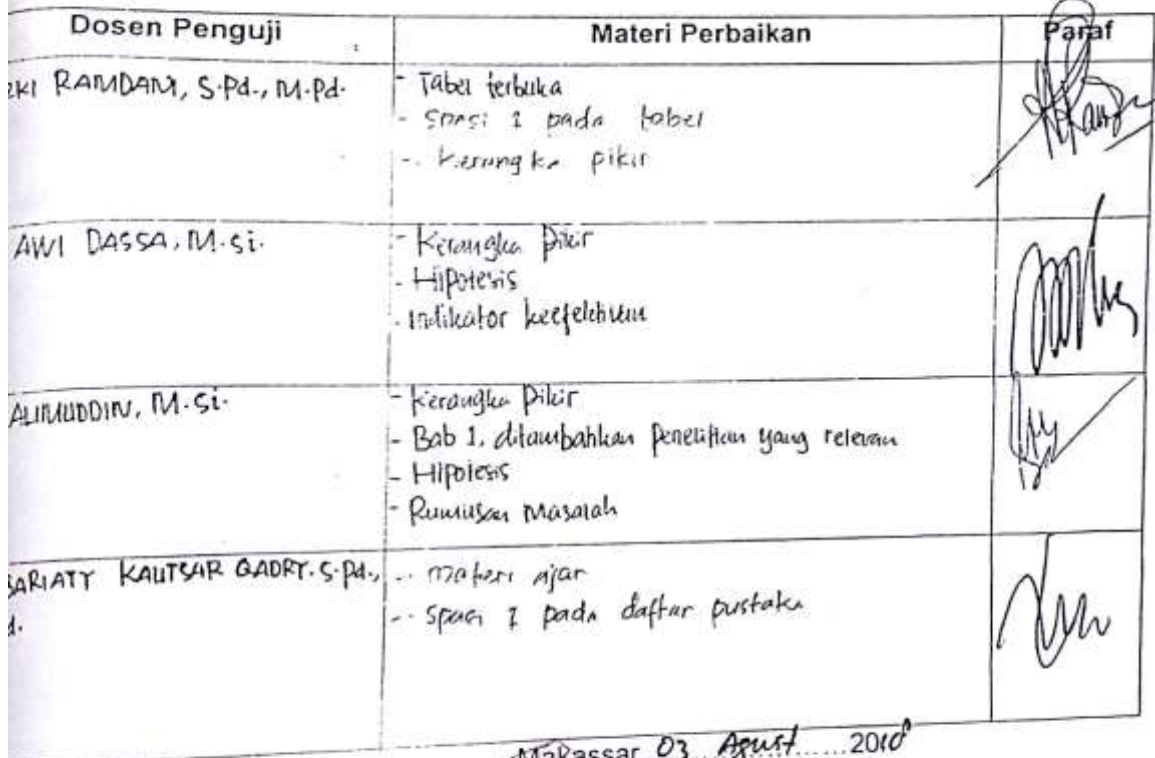 Dosen Penguji Materi Perbaikan Paraf
RAMDANI, S.Pd., M.Pd.
- Tabel terbuka
- Spasi 1 pada tabel
- Kerangka pikir
AWI DASSA, M.Si.
- Kerangka Pikir
- Hipotesis
- Indikator keefektivan
ALIMUDDIN, M.Si.
- Kerangka Pikir
- Bab 1, ditambahkan Penelitian yang relevan
- Hipotesis
- Rumusan Masalah
SARIATY KAUTSAR QADRY. S.Pd.,
d.
- Materi ajar
- Spasi 1 pada daftar pustaka
Makassar 03 Agust 2018